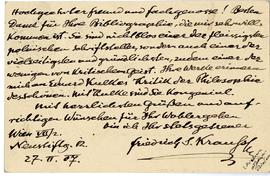 Hochgeehrter Freund und Fachgenosse! Besten
Dank für Ihre Bibliographie, die mir sehr will-
kommen ist. Sie sind nicht blos einer der fleissigsten
polnischen Schriftsteller, sondern auch einer der
vielseitigsten und gründlichsten, zudem einer der
wenigen von kritischem Geist. Ihre Werke erinnern
mich an Eduard Kulkes Kritik der Philosophie
des Schönen. Mit Kulke sind Sie kongenial.
Mit herzlichsten Grüßen und auf-
richtigen Wünschen für Ihr Wohlergehen
bin ich Ihr stetsgetreuer
Wien VII/2.
Neustiftg. 12
Friedrich S. Krauss
27. II. 07.